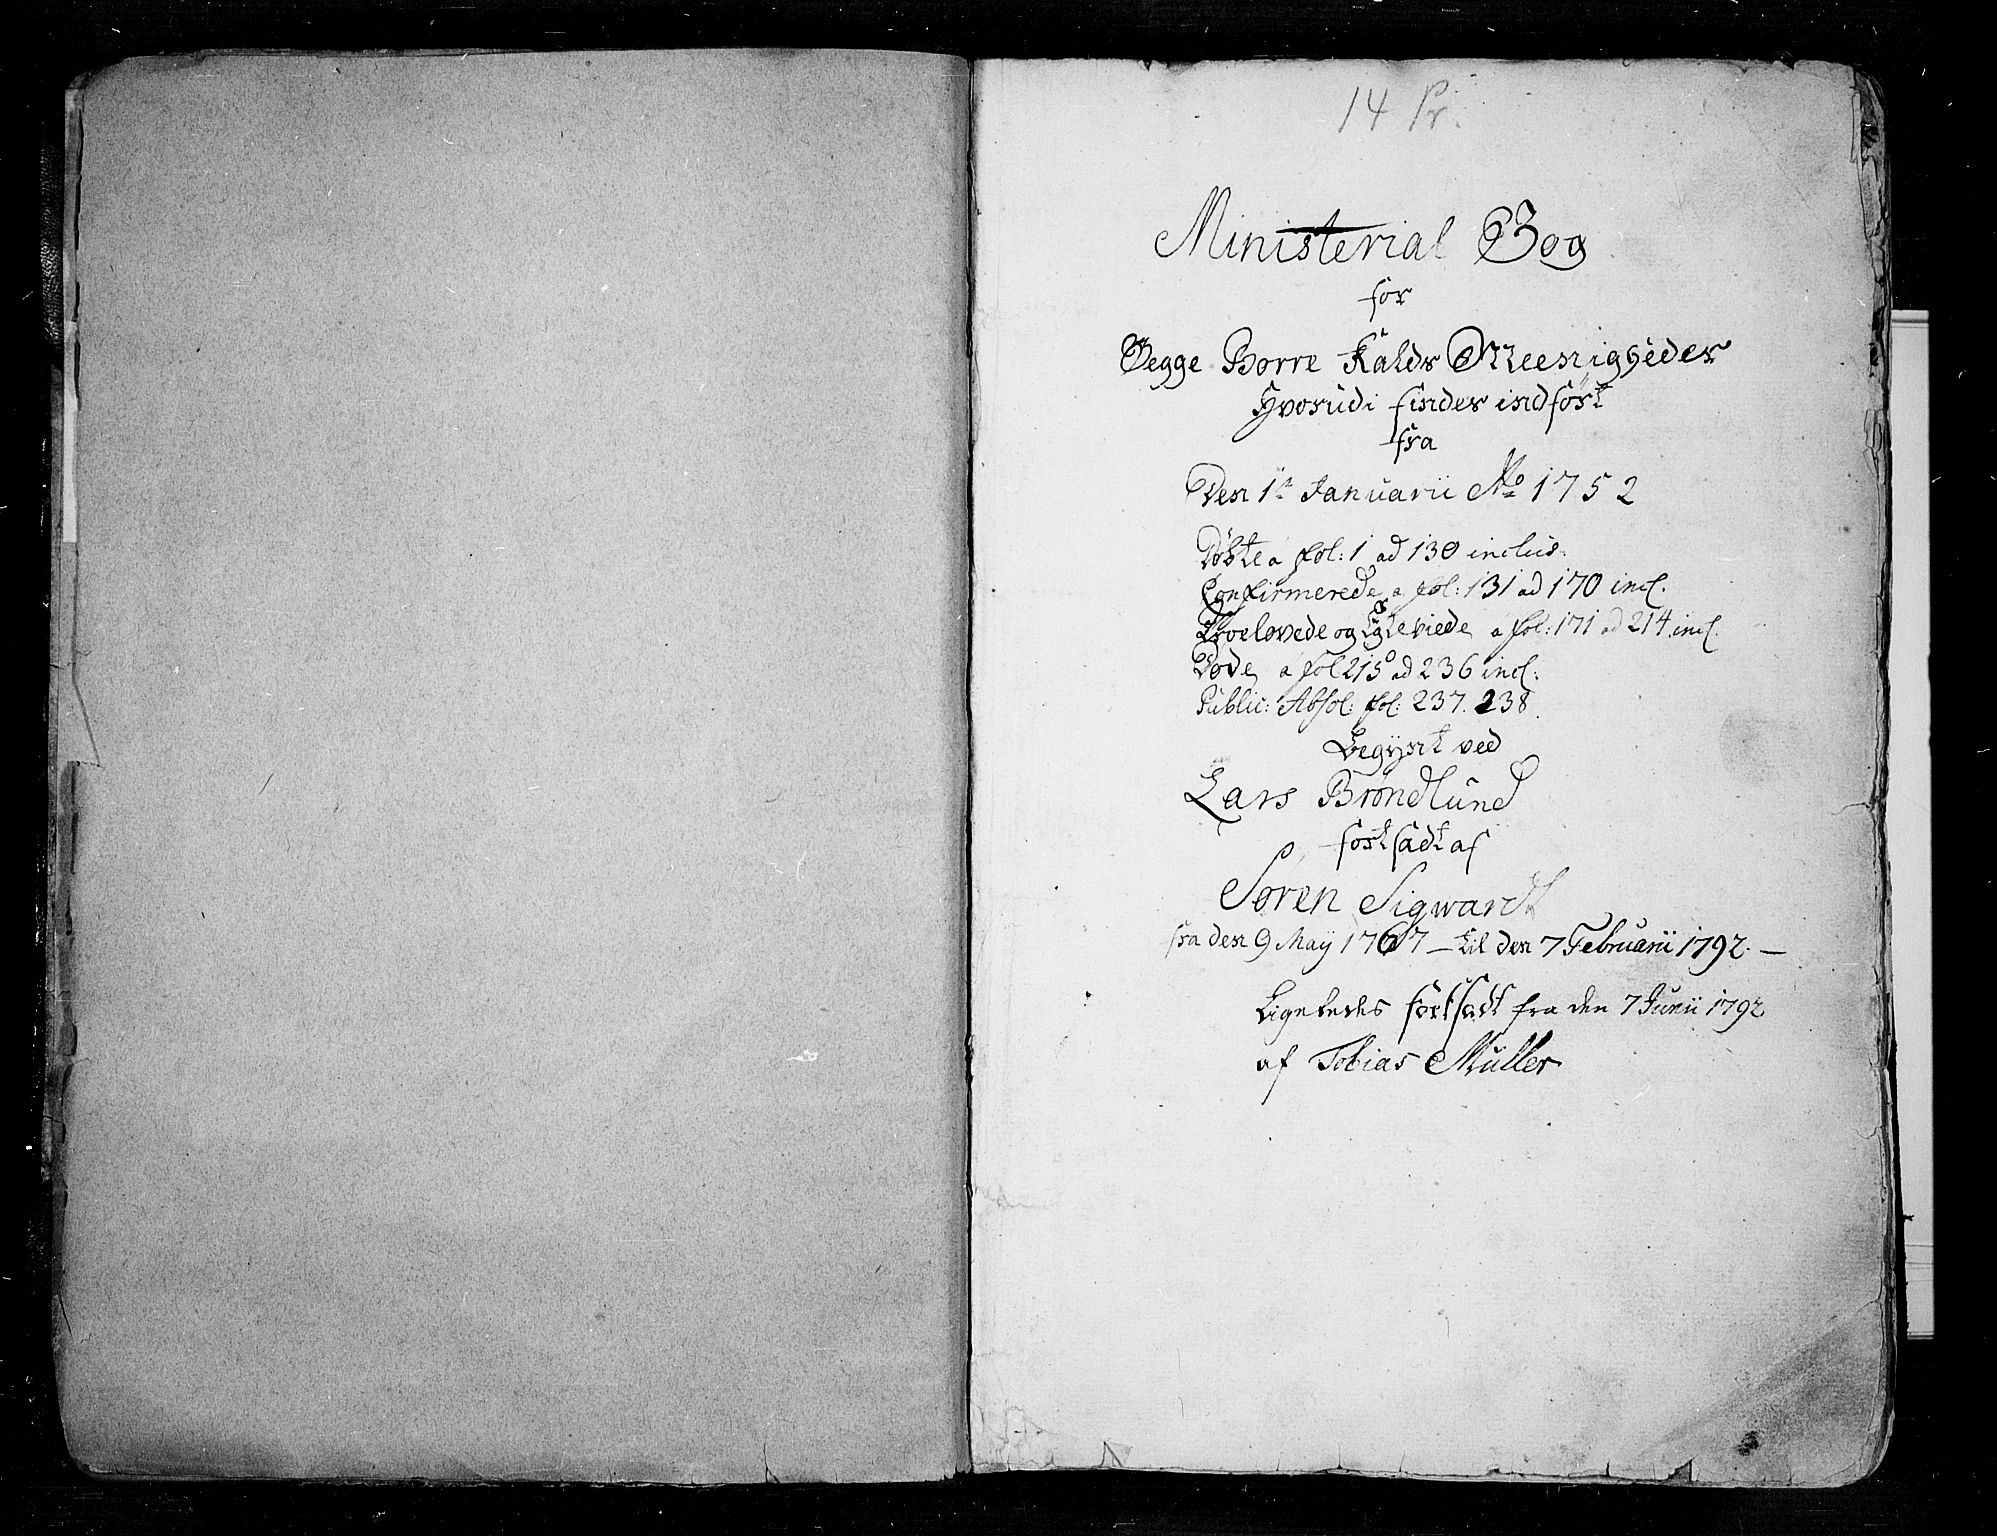 14 Pr.
Ministerial Bog
for
Begge Borre Kalds Meenigheder
Hvorudi findes indført
fra
Den 1te Januarii Ao 1752
Døbte a fol: 1 ad 130 inclus.
Confirmerede a fol: 131 ad 170 incl.
Troelovede og Egteviede a fol: 171 ad 214 incl.
Døde a fol 215 ad 236 incl:
Public: Absol: fol: 237. 238.
Begynt ved
Lars Brøndlund
fortsadt af
Søren Sigwardt
fra den 9 Maÿ 1767 – til den 7 Februarii 1792. –
Ligeledes fortsadt fra den 7 Junii 1792
af Tobias Müller